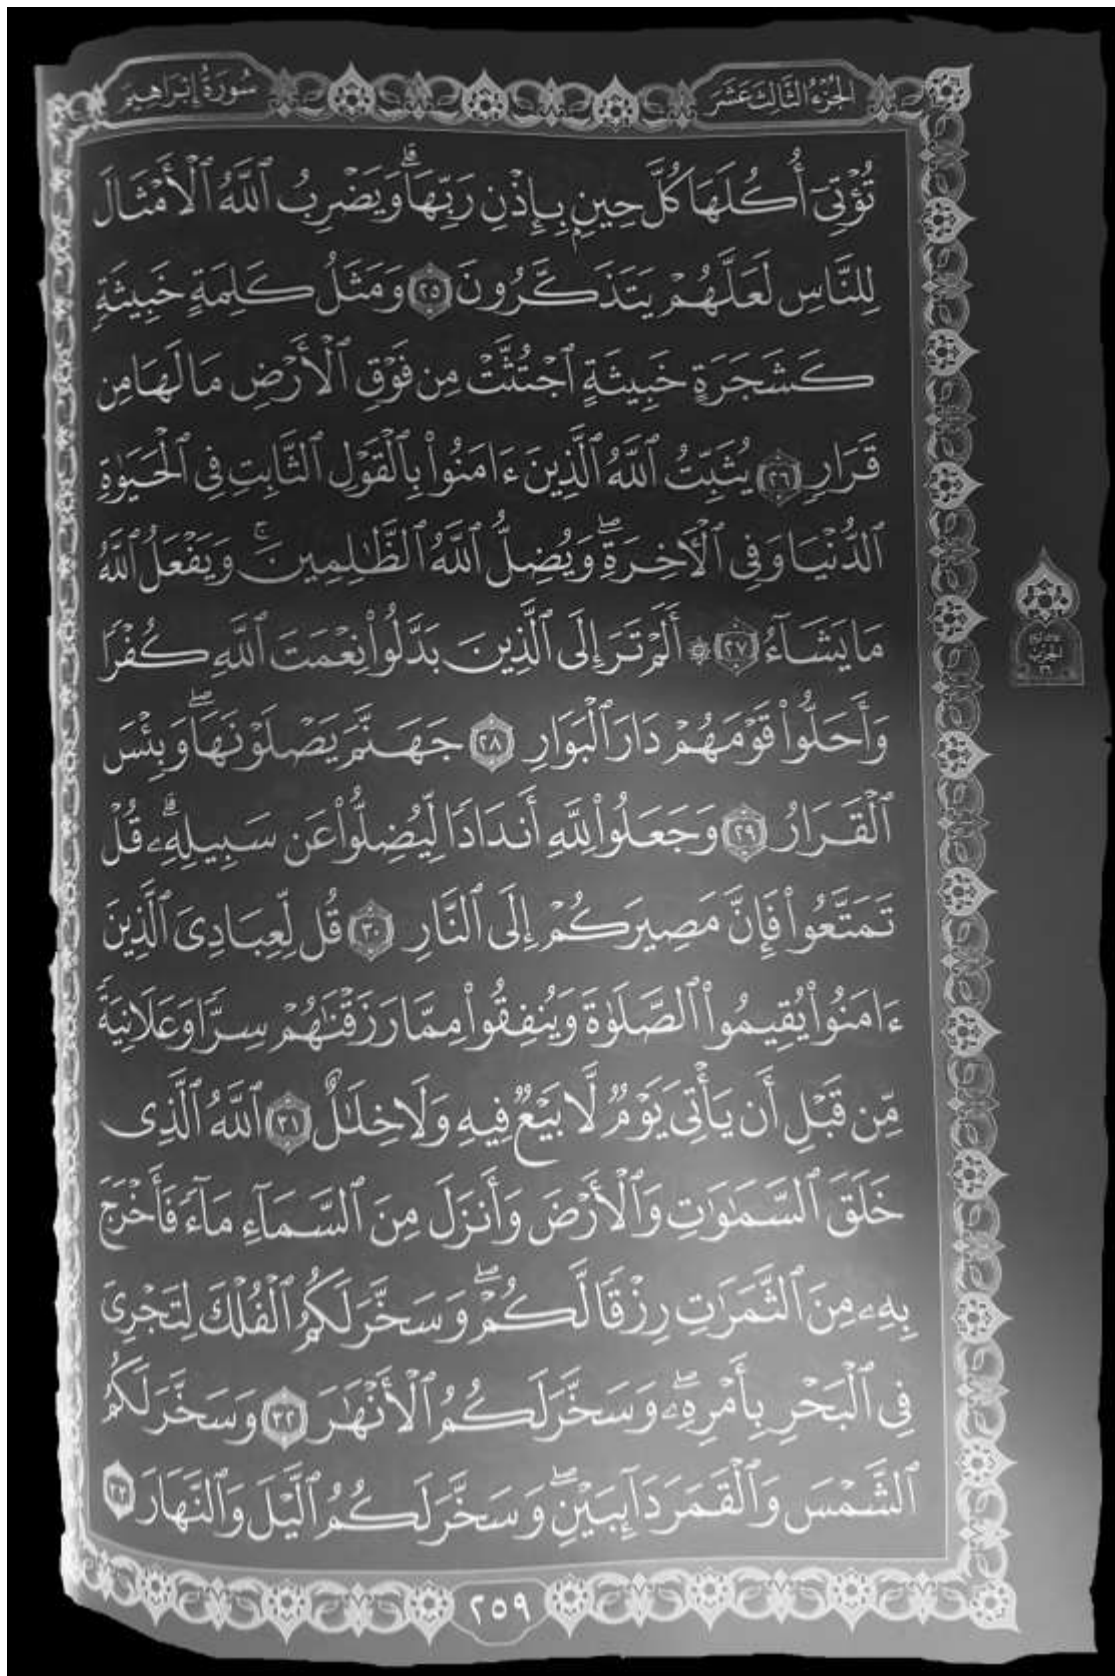 الجزء الثالث عشر
سورة إبراهيم
تُؤْتِىٓ أُكُلَهَا كُلَّ حِينِۭ بِإِذْنِ رَبِّهَاۗ وَيَضْرِبُ ٱللَّهُ ٱلْأَمْثَالَ
لِلنَّاسِ لَعَلَّهُمْ يَتَذَكَّرُونَ ٢٥ وَمَثَلُ كَلِمَةٍ خَبِيثَةٍ
كَشَجَرَةٍ خَبِيثَةٍ ٱجْتُثَّتْ مِن فَوْقِ ٱلْأَرْضِ مَا لَهَا مِن
قَرَارٍ ٢٦ يُثَبِّتُ ٱللَّهُ ٱلَّذِينَ ءَامَنُوا۟ بِٱلْقَوْلِ ٱلثَّابِتِ فِى ٱلْحَيَوٰةِ
ٱلدُّنْيَا وَفِى ٱلْأَخِرَةِۖ وَيُضِلُّ ٱللَّهُ ٱلظَّٰلِمِينَۚ وَيَفْعَلُ ٱللَّهُ
مَا يَشَآءُ ٢٧ ۞ أَلَمْ تَرَ إِلَى ٱلَّذِينَ بَدَّلُوا۟ نِعْمَتَ ٱللَّهِ كُفْرًا
وَأَحَلُّوا۟ قَوْمَهُمْ دَارَ ٱلْبَوَارِ ٢٨ جَهَنَّمَ يَصْلَوْنَهَاۖ وَبِئْسَ
ٱلْقَرَارُ ٢٩ وَجَعَلُوا۟ لِلَّهِ أَندَادًا لِّيُضِلُّوا۟ عَن سَبِيلِهِۦۗ قُلْ
تَمَتَّعُوا۟ فَإِنَّ مَصِيرَكُمْ إِلَى ٱلنَّارِ ٣٠ قُل لِّعِبَادِىَ ٱلَّذِينَ
ءَامَنُوا۟ يُقِيمُوا۟ ٱلصَّلَوٰةَ وَيُنفِقُوا۟ مِمَّا رَزَقْنَٰهُمْ سِرًّا وَعَلَانِيَةً
مِّن قَبْلِ أَن يَأْتِىَ يَوْمٌ لَّا بَيْعٌ فِيهِ وَلَا خِلَٰلٌ ٣١ ٱللَّهُ ٱلَّذِى
خَلَقَ ٱلسَّمَٰوَٰتِ وَٱلْأَرْضَ وَأَنزَلَ مِنَ ٱلسَّمَآءِ مَآءً فَأَخْرَجَ
بِهِۦ مِنَ ٱلثَّمَرَٰتِ رِزْقًا لَّكُمْۖ وَسَخَّرَ لَكُمُ ٱلْفُلْكَ لِتَجْرِىَ
فِى ٱلْبَحْرِ بِأَمْرِهِۦۖ وَسَخَّرَ لَكُمُ ٱلْأَنْهَٰرَ ٣٢ وَسَخَّرَ لَكُمُ
ٱلشَّمْسَ وَٱلْقَمَرَ دَآئِبَيْنِۖ وَسَخَّرَ لَكُمُ ٱلَّيْلَ وَٱلنَّهَارَ ٣٣
الحزب
٢٦
٢٥٩